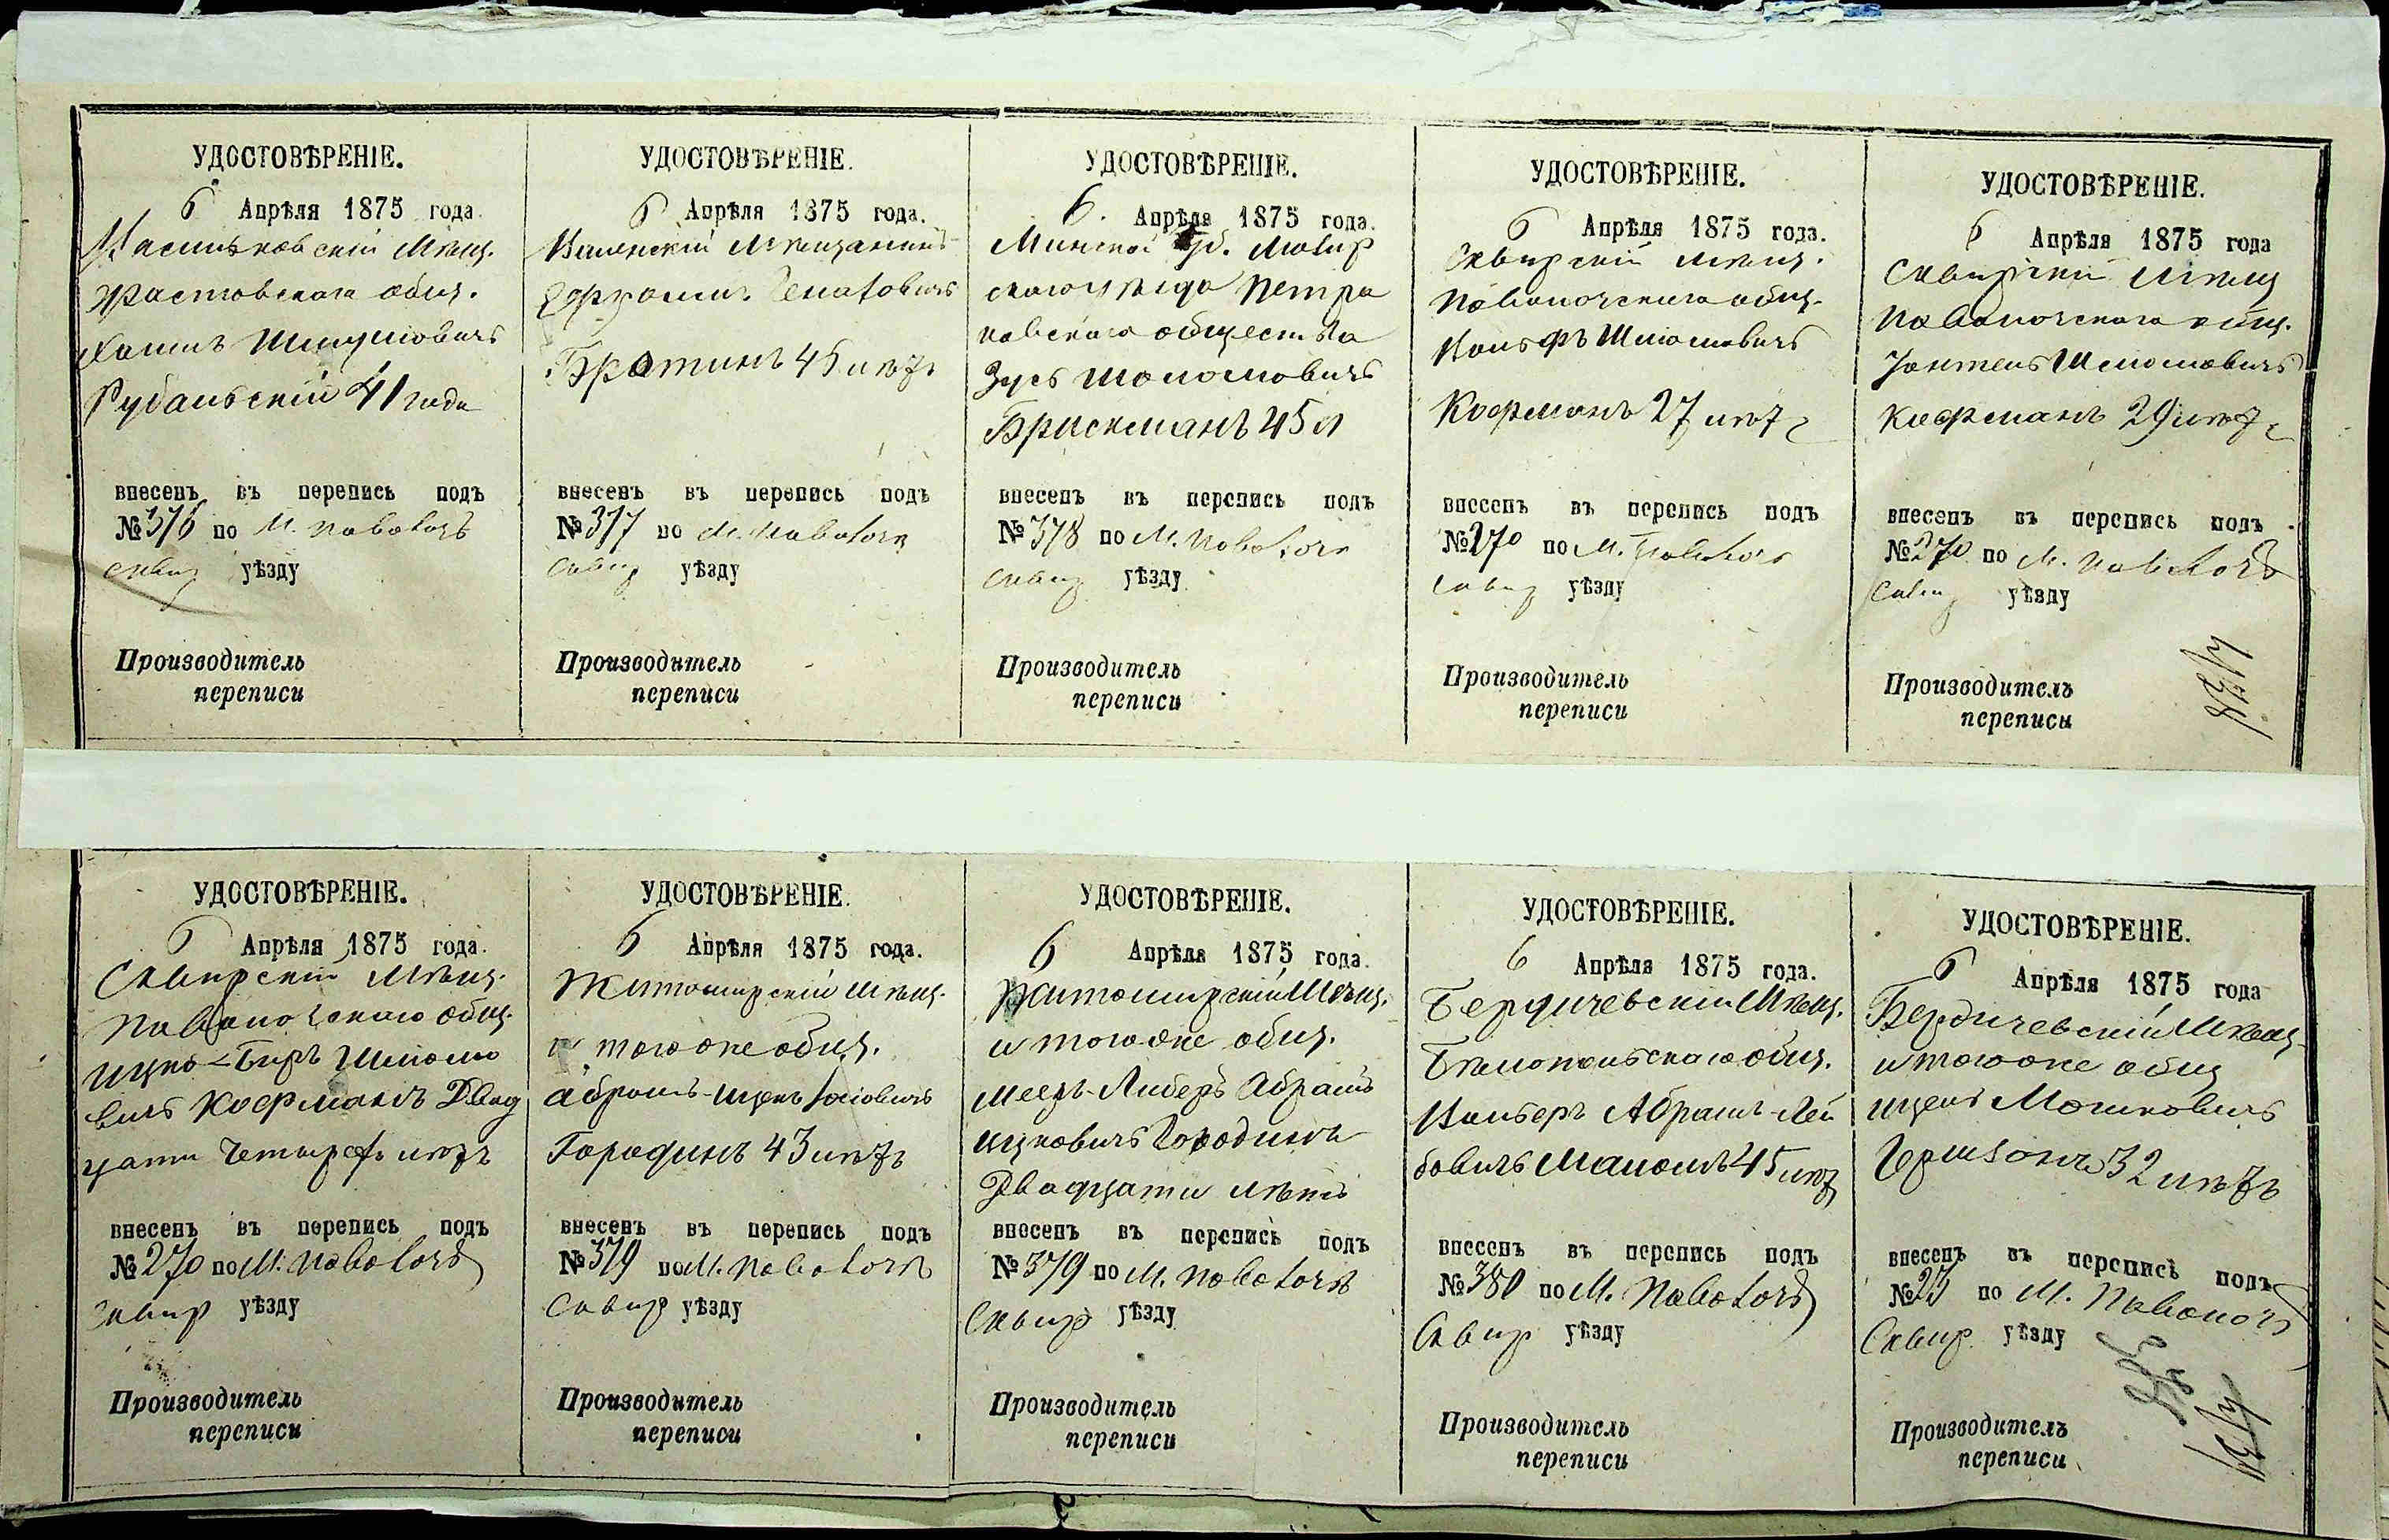 УДОСТОВѢРЕНІЕ.
6 Апрѣля 1875 года.
Васильковскій Мѣщ.
Фастовскаго общ.
Хаимъ Шмулювичъ
Рубальскій 41 года
внесенъ въ перепись подъ
№ 376 по М. Паволочѣ
Сквир уѣзду
Производитель
переписи
УДОСТОВѢРЕНІЕ.
6 Апрѣля 1875 года.
Виленскій Мѣщанинъ
Братинъ 45 лѣтъ
внесенъ въ перепись подъ
№ 377 по М. Паволочѣ
Сквир уѣзду
Производитель
переписи
УДОСТОВѢРЕНІЕ.
6. Апрѣля 1875 года.
Минской Губ. Мозир
скаго уѣзда Петри
ковскаго общества
Зусь Шоломовичъ
Брискманъ 45 л
внесенъ въ перепись подъ
№ 378 по М. Паволочѣ
Сквир уѣзду
Производитель
переписи
УДОСТОВѢРЕНІЕ.
6 Апрѣля 1875 года.
Сквирскій мѣщ.
Паволочскаго общ.
Шліомовичъ
Кофманъ 27 лѣтъ
внесенъ въ перепись подъ
№ 270 по М. Паволочѣ
Сквир уѣзду
Производитель
переписи
УДОСТОВѢРЕНІЕ.
6 Апрѣля 1875 года
Сквирскій мѣщ
Паволочскаго общ.
Іонтель Шліомовичъ
Кофманъ 29 лѣтъ
внесенъ въ перепись подъ
№ 270 по М. Паволочѣ
Сквир уѣзду
Производитель
переписи
УДОСТОВѢРЕНІЕ.
6 Апрѣля 1875 года.
Сквирскій Мѣщ.
Паволочскаго общ.
Ицко-Беръ Шліомо
вичъ Кофманъ Двад
цати Четырехъ лѣтъ
внесенъ въ перепись подъ
№ 270 по М. Паволочѣ
Сквир уѣзду
Производитель
переписи
УДОСТОВѢРЕНІЕ.
6 Апрѣля 1875 года.
Житомирскій Мѣщ.
и тогоже общ.
Абрамъ-Ицекъ
Городинъ 43 лѣтъ
внесенъ въ перепись подъ
№ 379 по М. Паволочѣ
Сквир уѣзду
Производитель
переписи
УДОСТОВѢРЕНІЕ.
6 Апрѣля 1875 года.
Житомирскій Мѣщ.
и тогоже общ.
Мееръ-Либеръ Абрамъ
Ицковичъ Городинъ
Двадцати лѣтъ
внесенъ въ перепись подъ
№ 379 по М. Паволочѣ
Сквир уѣзду
Производитель
переписи
УДОСТОВѢРЕНІЕ.
6 Апрѣля 1875 года.
Бердичевскій Мѣщ.
Бѣлопольскаго общ.
Абрамъ-Лей
бовичъ 45 лѣтъ
внесенъ въ перепись подъ
№ 380 по М. Паволочѣ
Сквир уѣзду
Производитель
переписи
УДОСТОВѢРЕНІЕ.
6 Апрѣля 1875 года
Бердичевскій Мѣщ
и тогоже общ
Ицекъ Мошковичъ
Гершзонъ 32 лѣтъ
внесенъ въ перепись подъ
№ 23 по М. Паволочѣ
Сквир уѣзду
Производитель
переписи